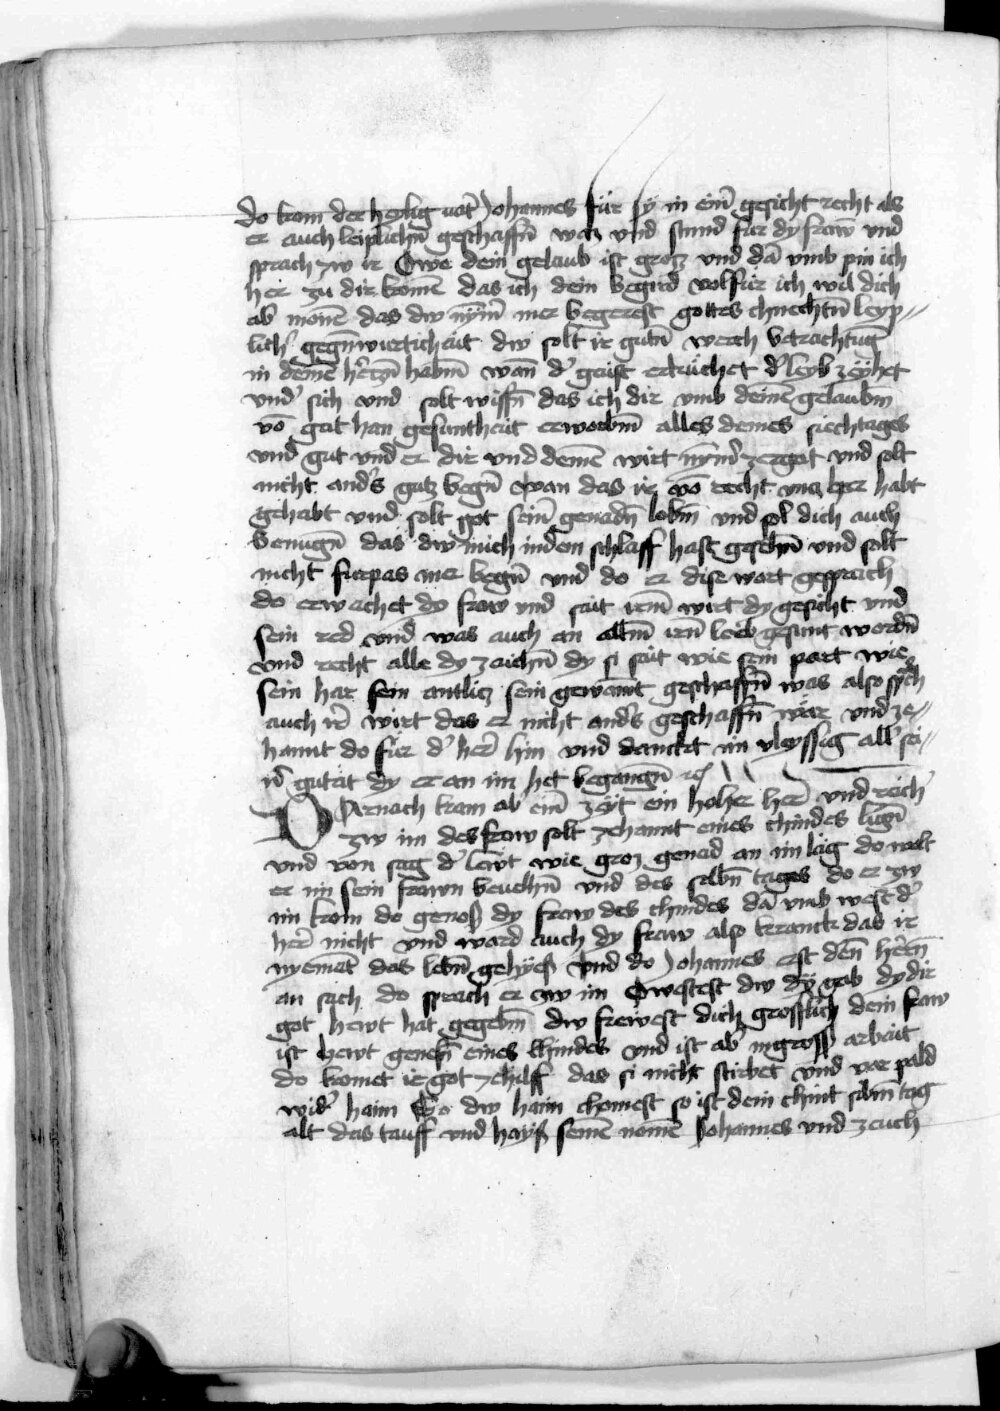 do kom der heylig vat̄ Johannes für sy in ein̄ gesicht recht als
er auch leiplichn̄ geschaffn̄ waz vnd stund für dy fraw vnd
sprach zw ir Owe dein gelaub ist groz vnd dā vmb pin ich
her zu dir komē das ich dein begird volfür ich wil dich
ab̓ monē das dw nym̄ mer begerest gottes chnechtn̄ leyp〃
lich̓ gegn̄wurticheit dw solt ir gutn̄ werch betrachtūg
in deinē hercz̄n habm̄ wan̄ d̓ geist erkücket d̓ leyb zeyhet
vnd̓ sich vnd solt wissn̄ das ich dir vmb deinē gelaubm̄
vō got han gesuntheit erworbm̄ alles deines siechtages
vnd gut vnd er dir vnd deinē wirt nym̄ zerget vnd solt
nicht and̓s gutz begern̄ wan das ir vō recht vncz her habt
gehabt vnd solt got sein̄ genadn̄ lobm̄ vnd sol dich auch
benugn̄ das dw mich in dem schlaff hast gesehn̄ vnd solt
nicht furpas mer begern̄ vnd do er dise wort gesprach
do erwachet dy fraw vnd sait irem̄ wirt dy gesicht vnd
sein red vnd was auch an allm̄ irn̄ leib gesunt wordn̄
vnd recht alle dy zaichn̄ dy si sait wie sein part wie
sein har sein antlicz sein gewannt geschaffn̄ was also sprach
auch ir̄ wirt das er nicht and̓s geschaffn̄ wär vnd ze〃
hannt do für d̓ her̄ hin vnd danckt im vleyssig all̓ sei〃
n̓ gutät dy er an im het begangn̄ ꝛc̄
DArnach kom ab̓ ein̄ zeyt ein hoher her̄ vnd reich̓
zw im des fraw solt zehannt eines chindes lign̄
vnd von sag d̓ lewt wie groz genad an im läg do wolt
er im sein frawn beuelhn̄ vnd des selbn̄ tages do er zw
im kom do genoß dy fraw des chindes dā vmb west d̓
her̄ nicht vnd ward auch dy fraw also kranck das ir
nyemāt das lebn̄ gehyeß vnd do Johannes erst den̄ herr̄n
an sach do sprach er zw im Owestest dw dy gab dy dir
got hewt hat gegebm̄ dw frewest dich grosslich dein fraw
ist hewt genesn̄ eines chindes vnd ist ab̓ in gross arbait
do komet ir got zehilff das si nicht stirbet vnd var pald
wid̓ haim So dw haim chomest so ist dein chint sibm̄ tag
alt das tauff vnd hayß seinē nomē Johannes vnd zeuch